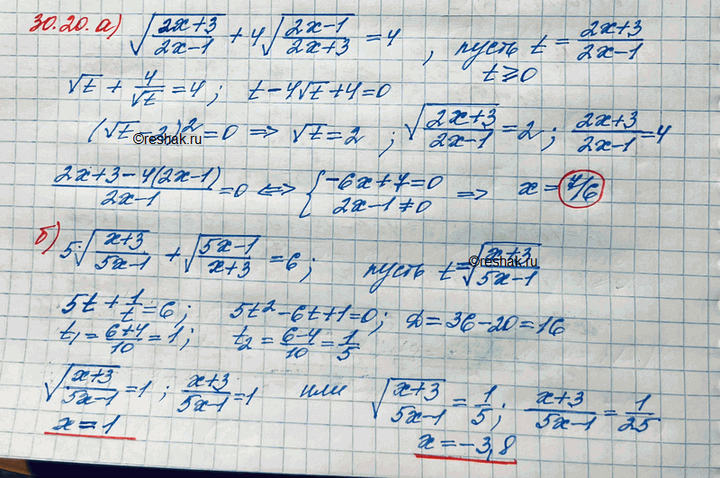 30.20. а) √((2x+3)/(2x-1)) + 4√((2x-1)/(2x+3)) = 4 , пусть t = (2x+3)/(2x-1)
t ≥ 0
√t + 4/√t = 4 ; t - 4√t + 4 = 0
(√t - 2)² = 0 ⇒ √t = 2 ; √((2x+3)/(2x-1)) = 2 ; (2x+3)/(2x-1) = 4
©reshak.ru
(2x+3-4(2x-1))/(2x-1) = 0 ⇔ { -6x+7=0 ; 2x-1≠0 ⇒ x = 7/6
б) 5·√((x+3)/(5x-1)) + √((5x-1)/(x+3)) = 6 ; пусть t = √((x+3)/(5x-1))
©reshak.ru
5t + 1/t = 6 ; 5t² - 6t + 1 = 0 ; D = 36 - 20 = 16
t₁ = (6+4)/10 = 1 ; t₂ = (6-4)/10 = 1/5
√((x+3)/(5x-1)) = 1 ; (x+3)/(5x-1) = 1 или √((x+3)/(5x-1)) = 1/5 ; (x+3)/(5x-1) = 1/25
x = 1
x = -3,8